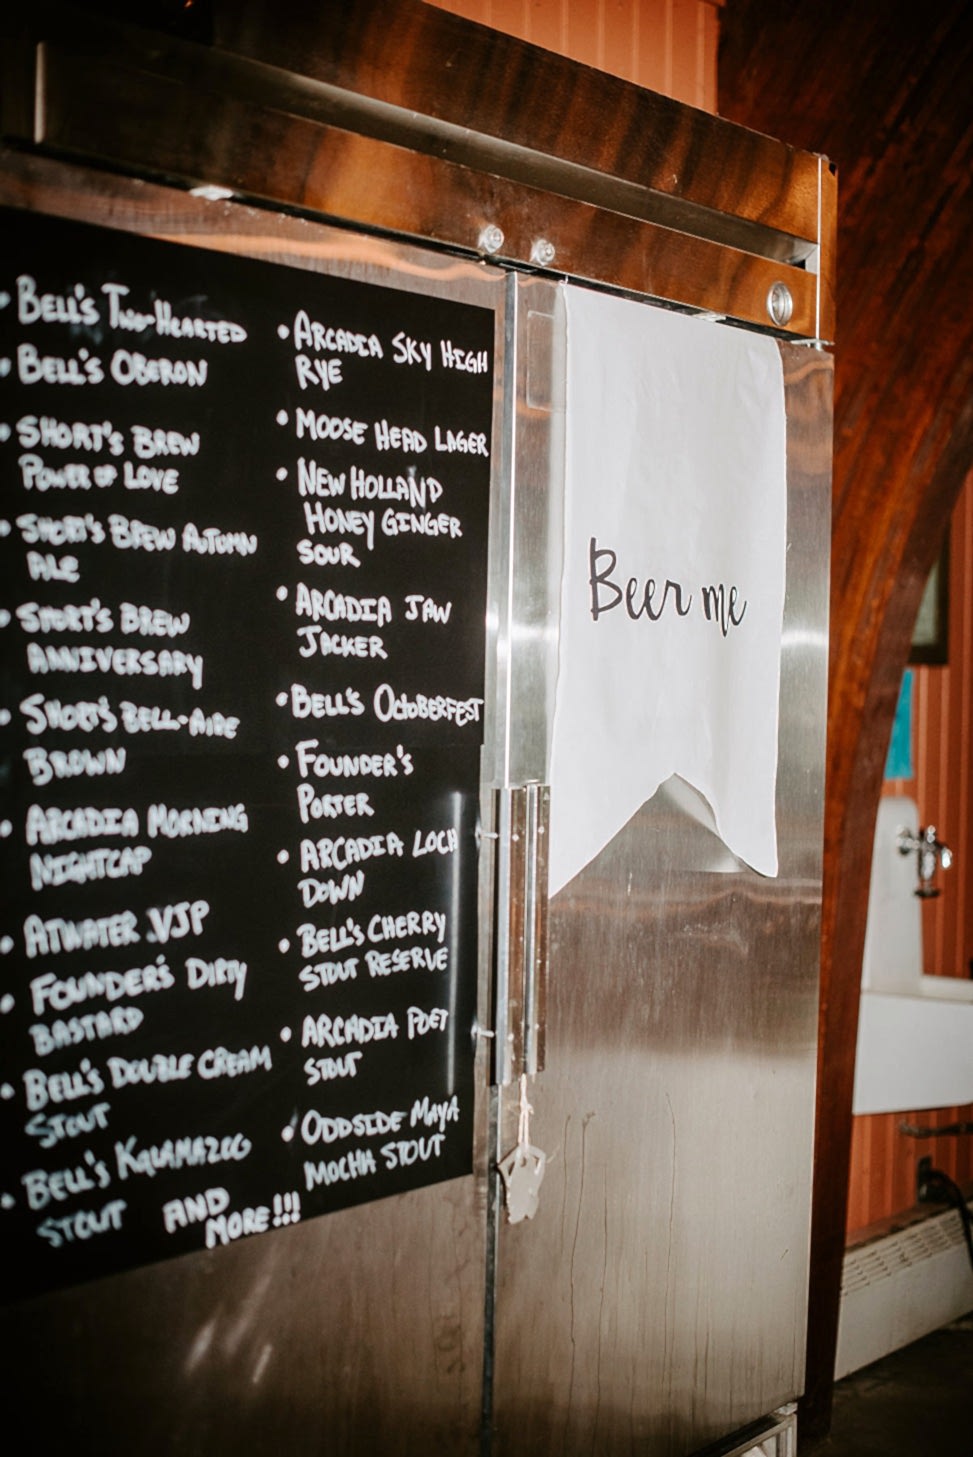 • Bell's Two-Hearted
• Bell's Oberon
• Short's Brew
Power of Love
• Short's Brew Autumn
Ale
• Short's Brew
Anniversary
• Short's Bell-Aire
Brown
• Arcadia Morning
Nightcap
• Atwater VJP
• Founder's Dirty
Bastard
• Bell's Double Cream
Stout
• Bell's Kalamazoo
Stout
AND
MORE!!!
• Arcadia Sky High
Rye
• Moose Head Lager
• New Holland
Honey Ginger
Sour
• Arcadia Jaw
Jacker
• Bell's Octoberfest
• Founder's
Porter
• Arcadia Loch
Down
• Bell's Cherry
Stout Reserve
• Arcadia Poet
Stout
• Oddside Maya
Mocha Stout
Beer me